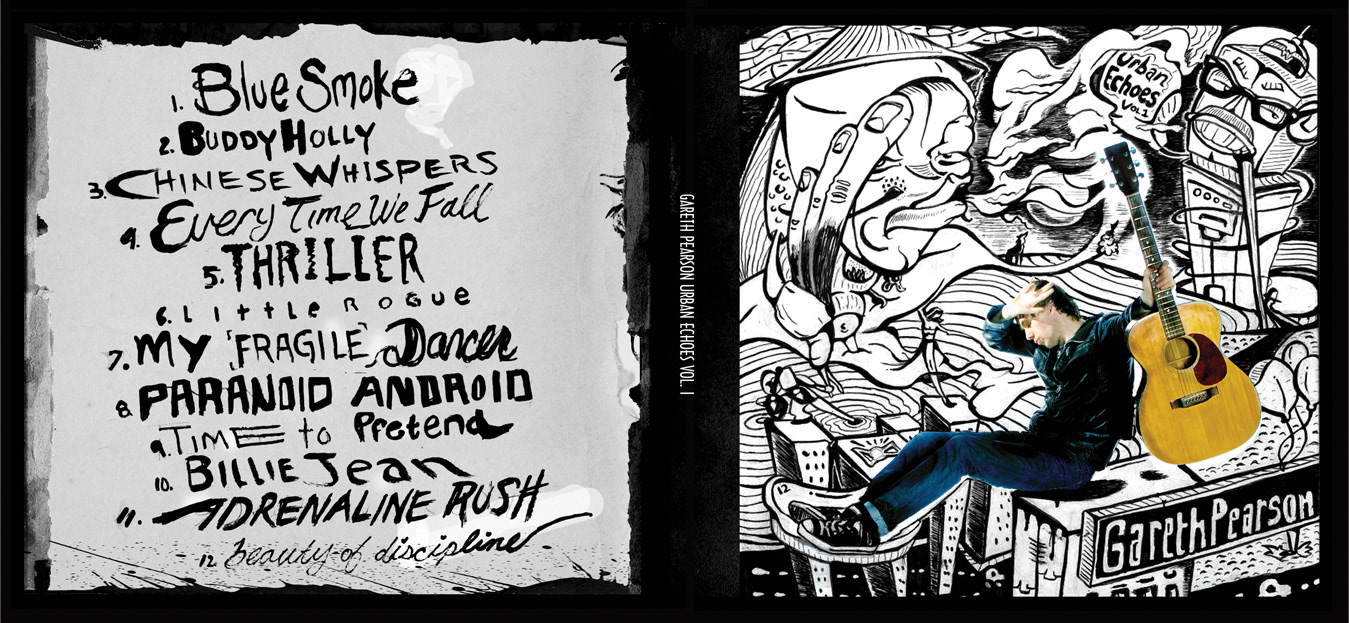 1. Blue Smoke
2. BUDDY HOLLY
3. CHINESE WHISPERS
4. Every Time We Fall
5. THRILLER
6. Little ROGUE
7. MY 'FRAGILE' Dancer
8. PARANOID ANDROID
9. TIME to Pretend
10. BILLIE Jean
11. ADRENALINE RUSH
12 beauty of discipline
GARETH PEARSON URBAN ECHOES VOL. 1
Urban
Echoes
VOL 1
12
Gareth Pearson